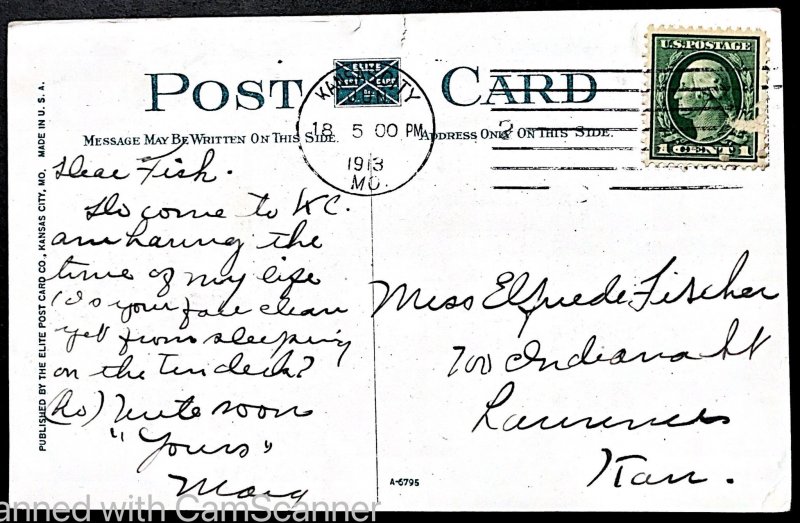 POST CARD
ELITE
KANSAS CITY
JUN
18 5 00 PM
1913
MO.
2
U.S. POSTAGE
1 CENT 1
MESSAGE MAY BE WRITTEN ON THIS SIDE.
ADDRESS ONLY ON THIS SIDE.
Dear Fish.
Do come to KC.
am having the
time of my life
(Is your face clean
yet from sleeping
on the Tin deck?
(No) Write soon
"Yours"
Marg
Miss Elfriede Fischer
700 Indiana St
Lawrence
Kan.
PUBLISHED BY THE ELITE POST CARD CO., KANSAS CITY, MO. MADE IN U.S.A.
A-6795
anned with CamScanner